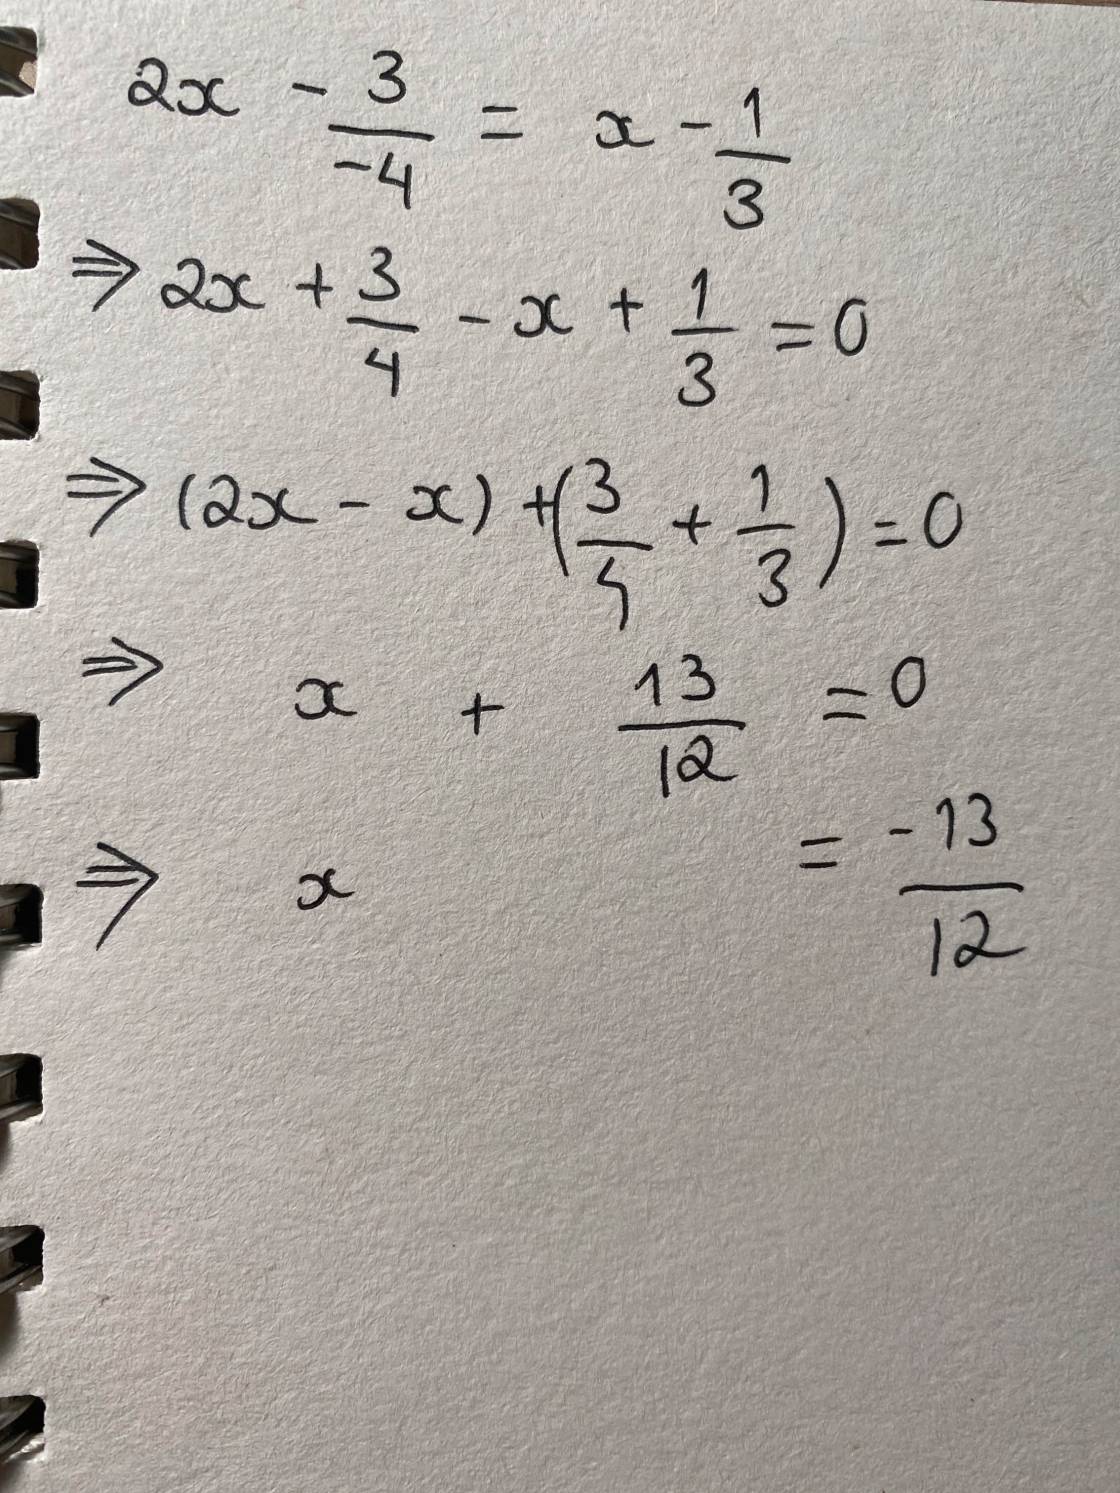 2x - 3/-4 = x - 1/3
⇒ 2x + 3/4 - x + 1/3 = 0
⇒ (2x - x) + (3/4 + 1/3) = 0
⇒ x + 13/12 = 0
⇒ x = -13/12